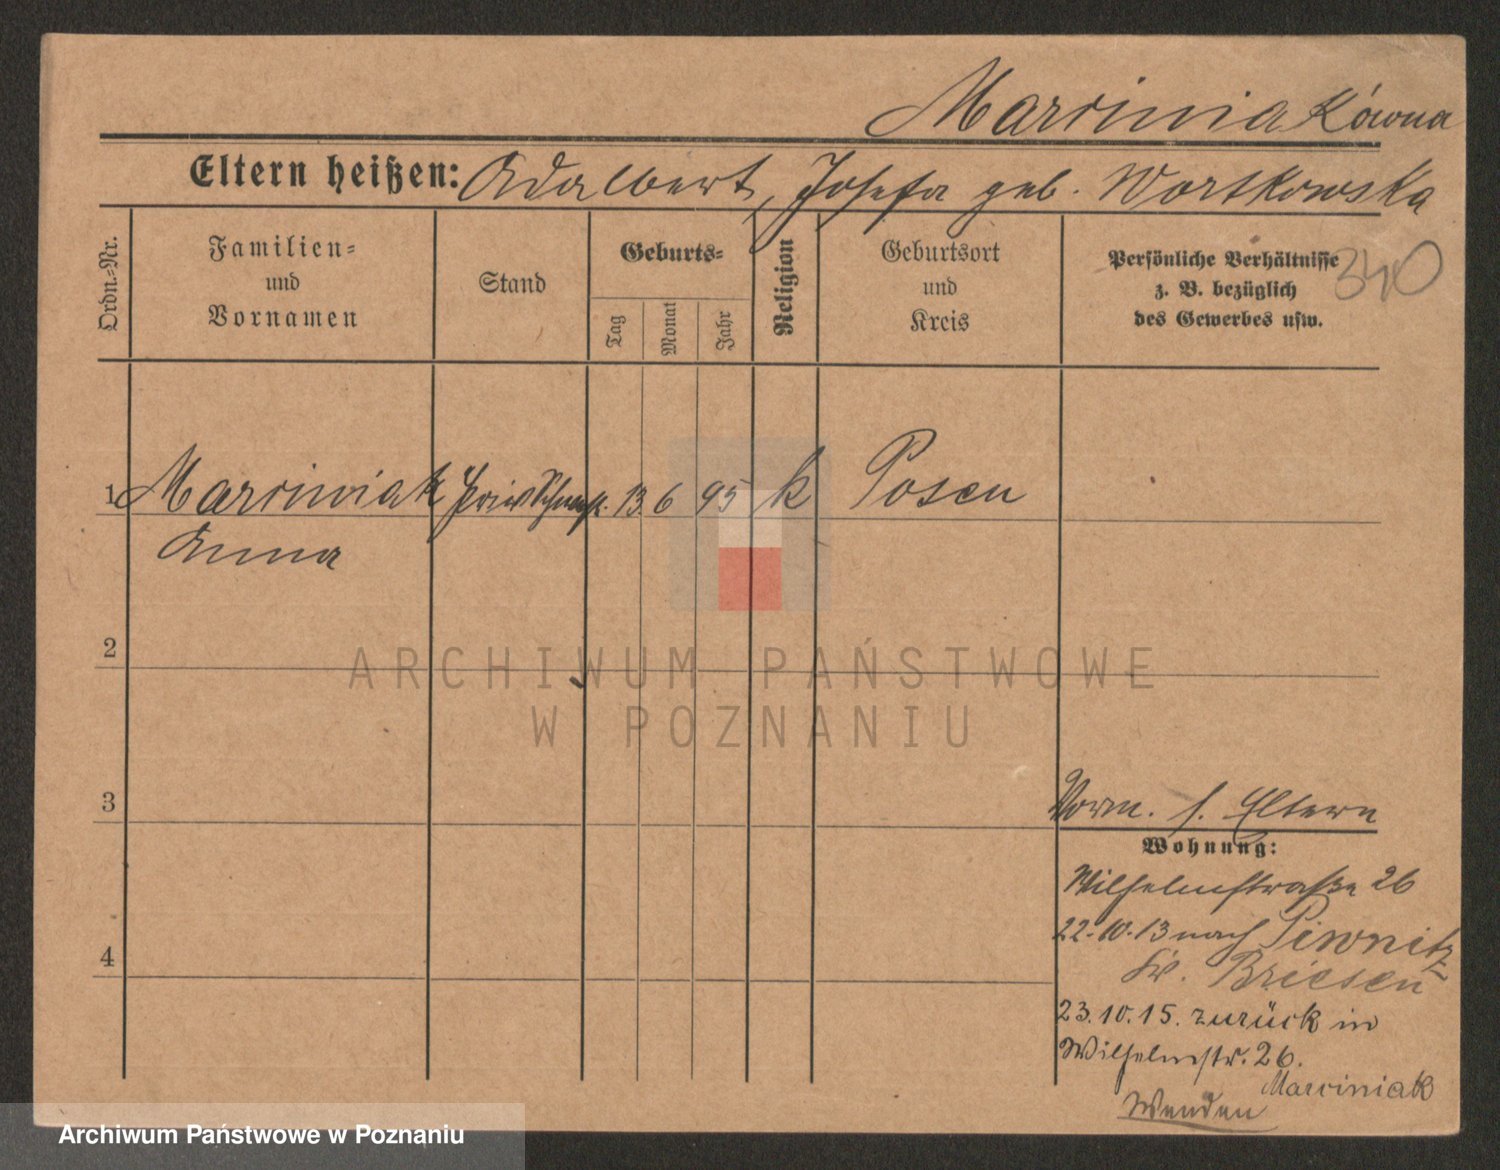 Marciniakówna
Eltern heißen: Adalbert, Josefa geb. Wortkowska
Ordn.-Nr.
Familien-
und
Vornamen
Stand
Geburts-
Tag
Monat
Jahr
Religion
Geburtsort
und
Kreis
Persönliche Verhältnisse
z. B. bezüglich
des Gewerbes usw.
340
1 Marciniak 13. 6 95 k Posen
Anna
2
3
4
Vorm. s. Eltern
Wohnung:
Wilhelmstraße 26
22.10.13 nach Piwnitz
Kr. Briesen
23.10.15. zurück in
Wilhelmstr. 26.
Marciniak
Wenden
ARCHIWUM PAŃSTWOWE
W POZNANIU
Archiwum Państwowe w Poznaniu